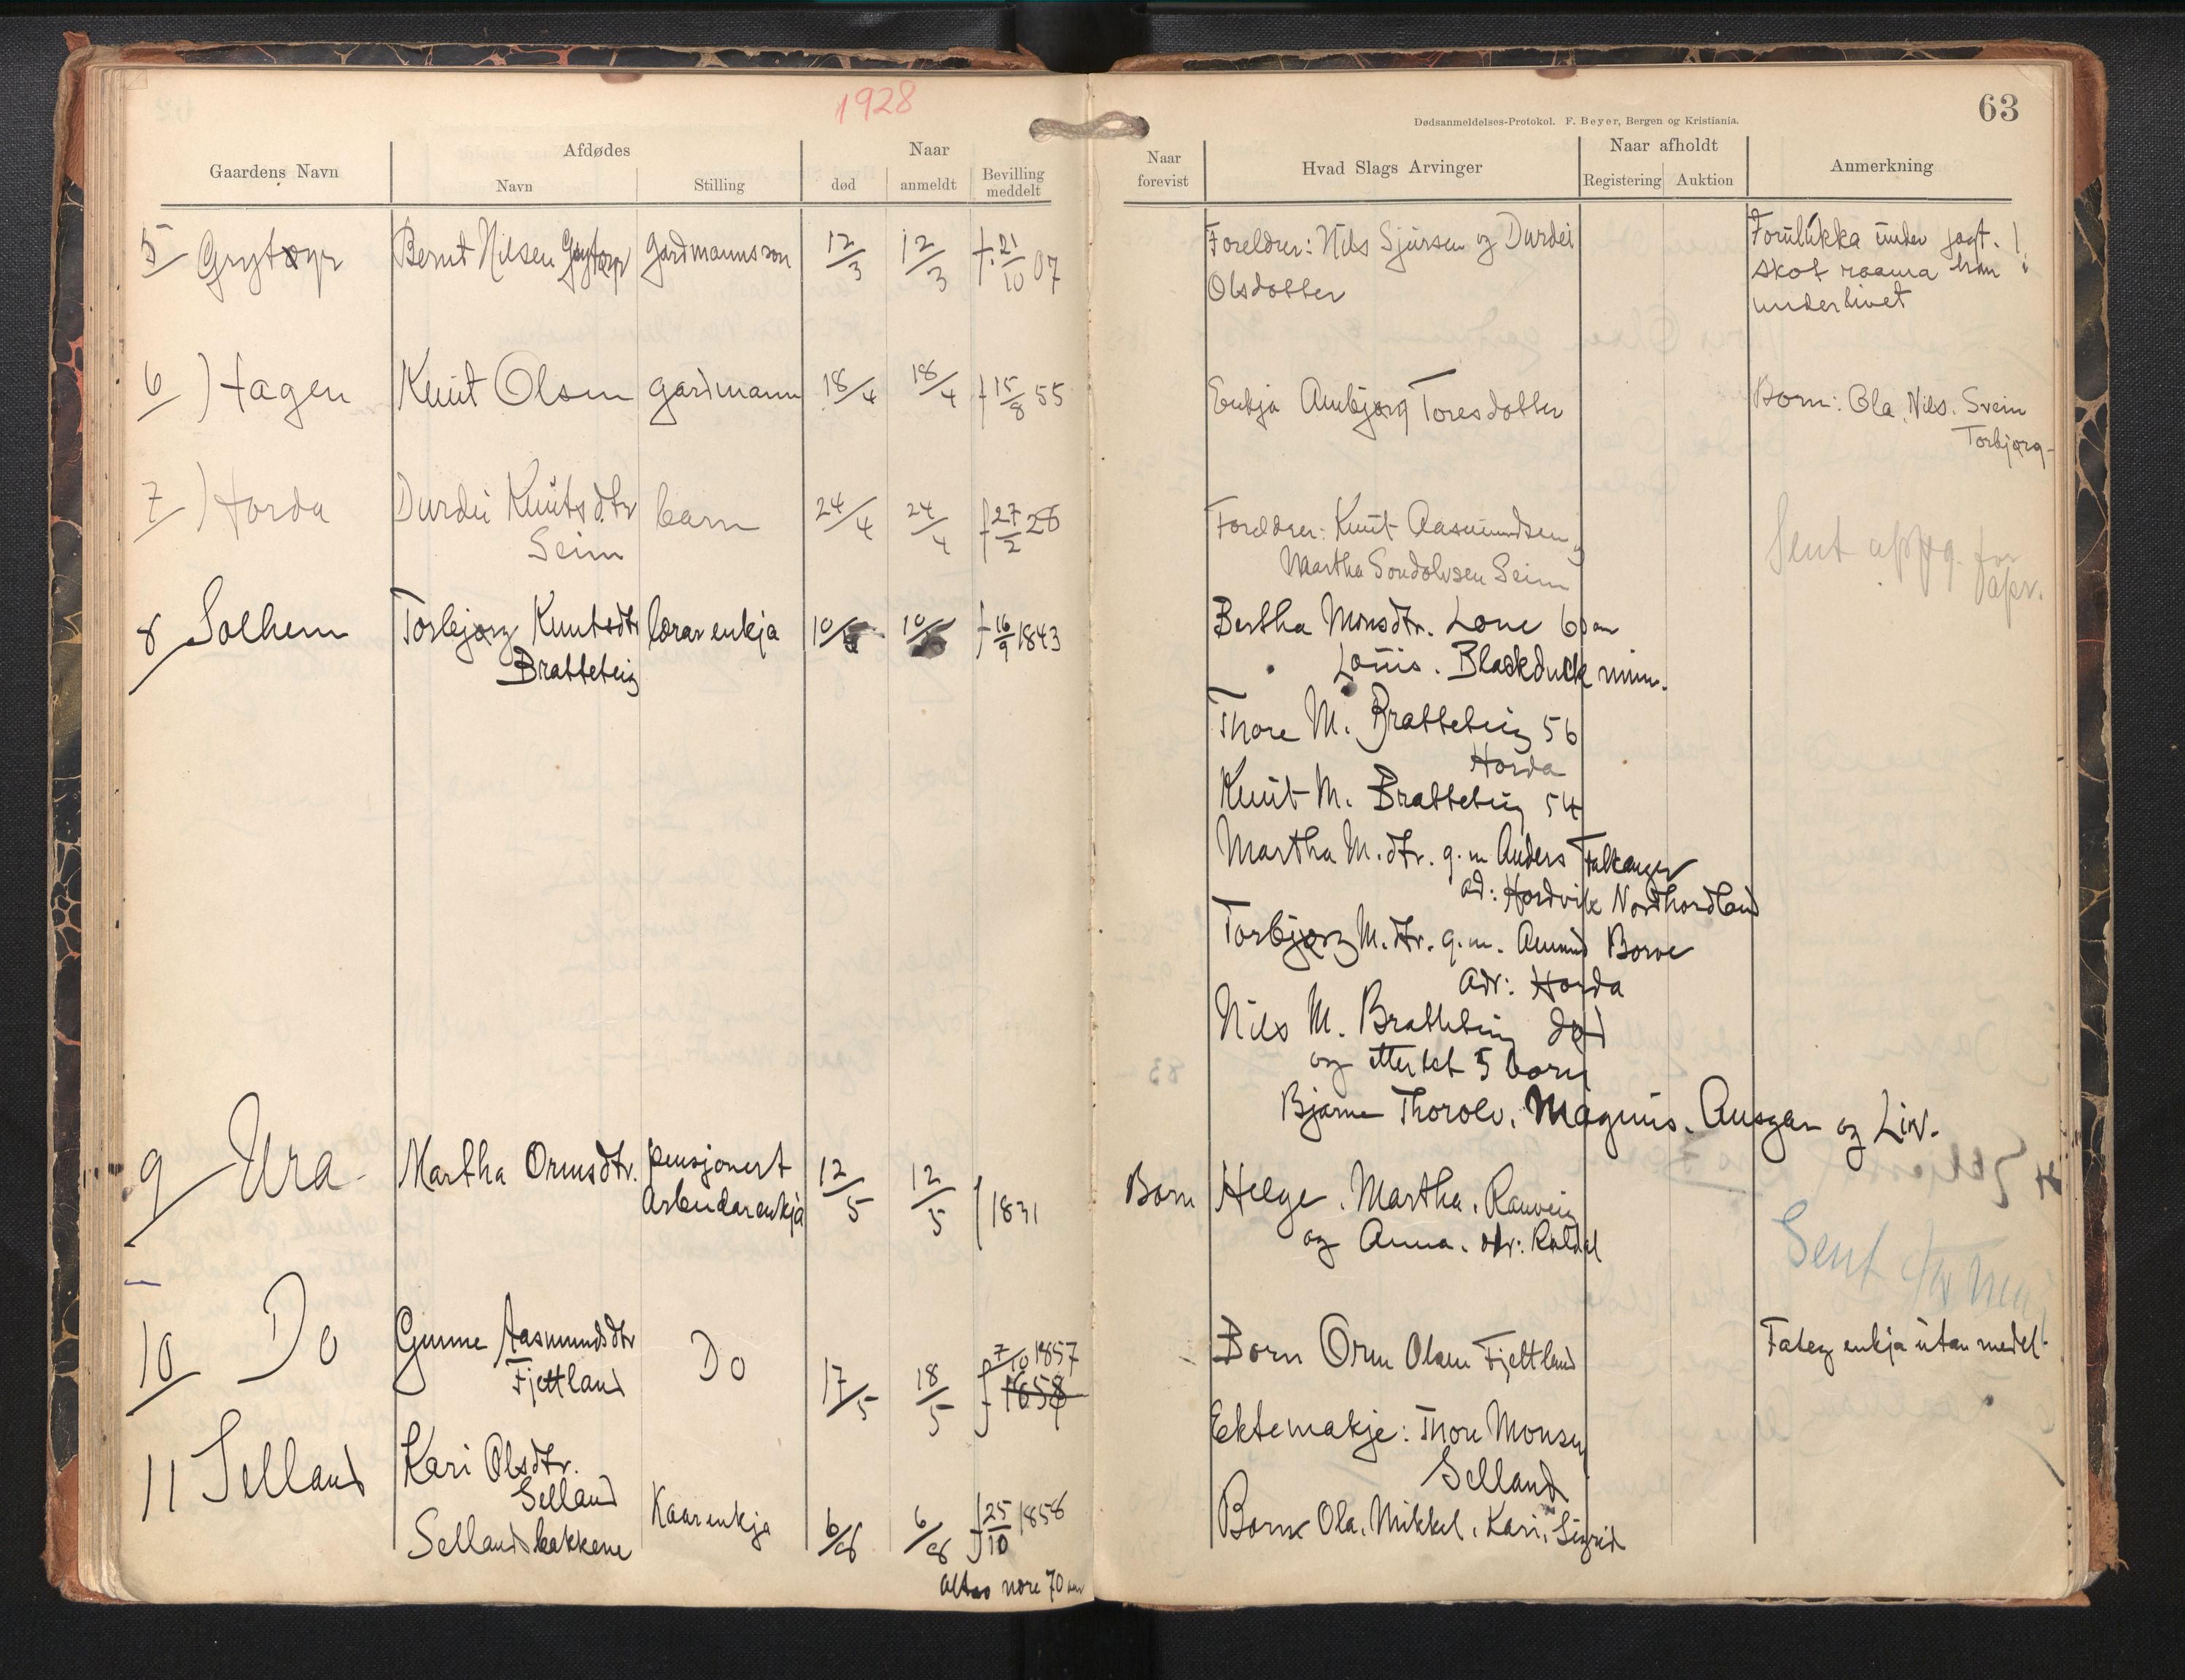 1928
63
Dødsanmeldelses-Protokol. F. Beyer, Bergen og Kristiania.
Gaardens Navn
Afdødes
Navn
Stilling
Naar
død
anmeldt
Bevilling meddelt
Naar forevist
Hvad Slags Arvinger
Naar afholdt
Registering
Auktion
Anmerkning
5 Grytøyr Bernt Nilsen Grytøyr gardmannsson 12/3 12/3 f. 21/10 07 Foreldrer: Nils Sjursen og Durdei
Olsdotter
Forulukka under jagt.!
skot raama han i
underlivet
6 Hagen Knut Olsen gardmann 18/4 18/4 f 15/8 55 Enkja Ambjørg Toresdotter Born: Ola, Nils. Svein
Torbjørg
7 Horda Durdei Knutsdtr barn 24/4 24/4 f 27/2 28 Foreldrer: Knut Aasmundsen og
Seim
Martha Sondolvsen Seim
Sent
8 Solheim Torbjørg Knutsdtr lærarenkja 10/5 10/5 f 16/9 1843 Bertha Monsdtr. Lone 60 aar
Bratteteig
Louis. Blackduck minn.
Thore M. Bratteteig 56
Horda
Knut M. Bratteteig 54
Martha M.dtr. g.m Anders Falkanger
ad: Hordvik Nordhordland
Torbjørg M.dtr. g.m. Amund Borve
Adr: Horda
Nils M. Bratteteig død
og etterlet 5 born
Bjarne Thorolv. Magnus. Ansgar og Liv.
9 Ura Martha Ormsdtr. pensjonert 12/5 12/5 f 1831 Born Helge. Martha. Ranveig
Arbeidarenkja
og Anna. adr: Røldal
Sent
10 Do Gunne Aasmundsdtr Do 17/5 18/5 f 7/10 1857 Born Orm Olsen Fjetland Fateg enkja utan medel.
Fjetland
1858
11 Selland Kari Olsdtr. Kaarenkja 6/8 6/8 f 25/10 1858 Ektemakje: Thore Monsen
Selland
Selland
Sellandsbakkene
Born Ola. Mikkel. Kari. Sigrid
Altso nore 70 aar